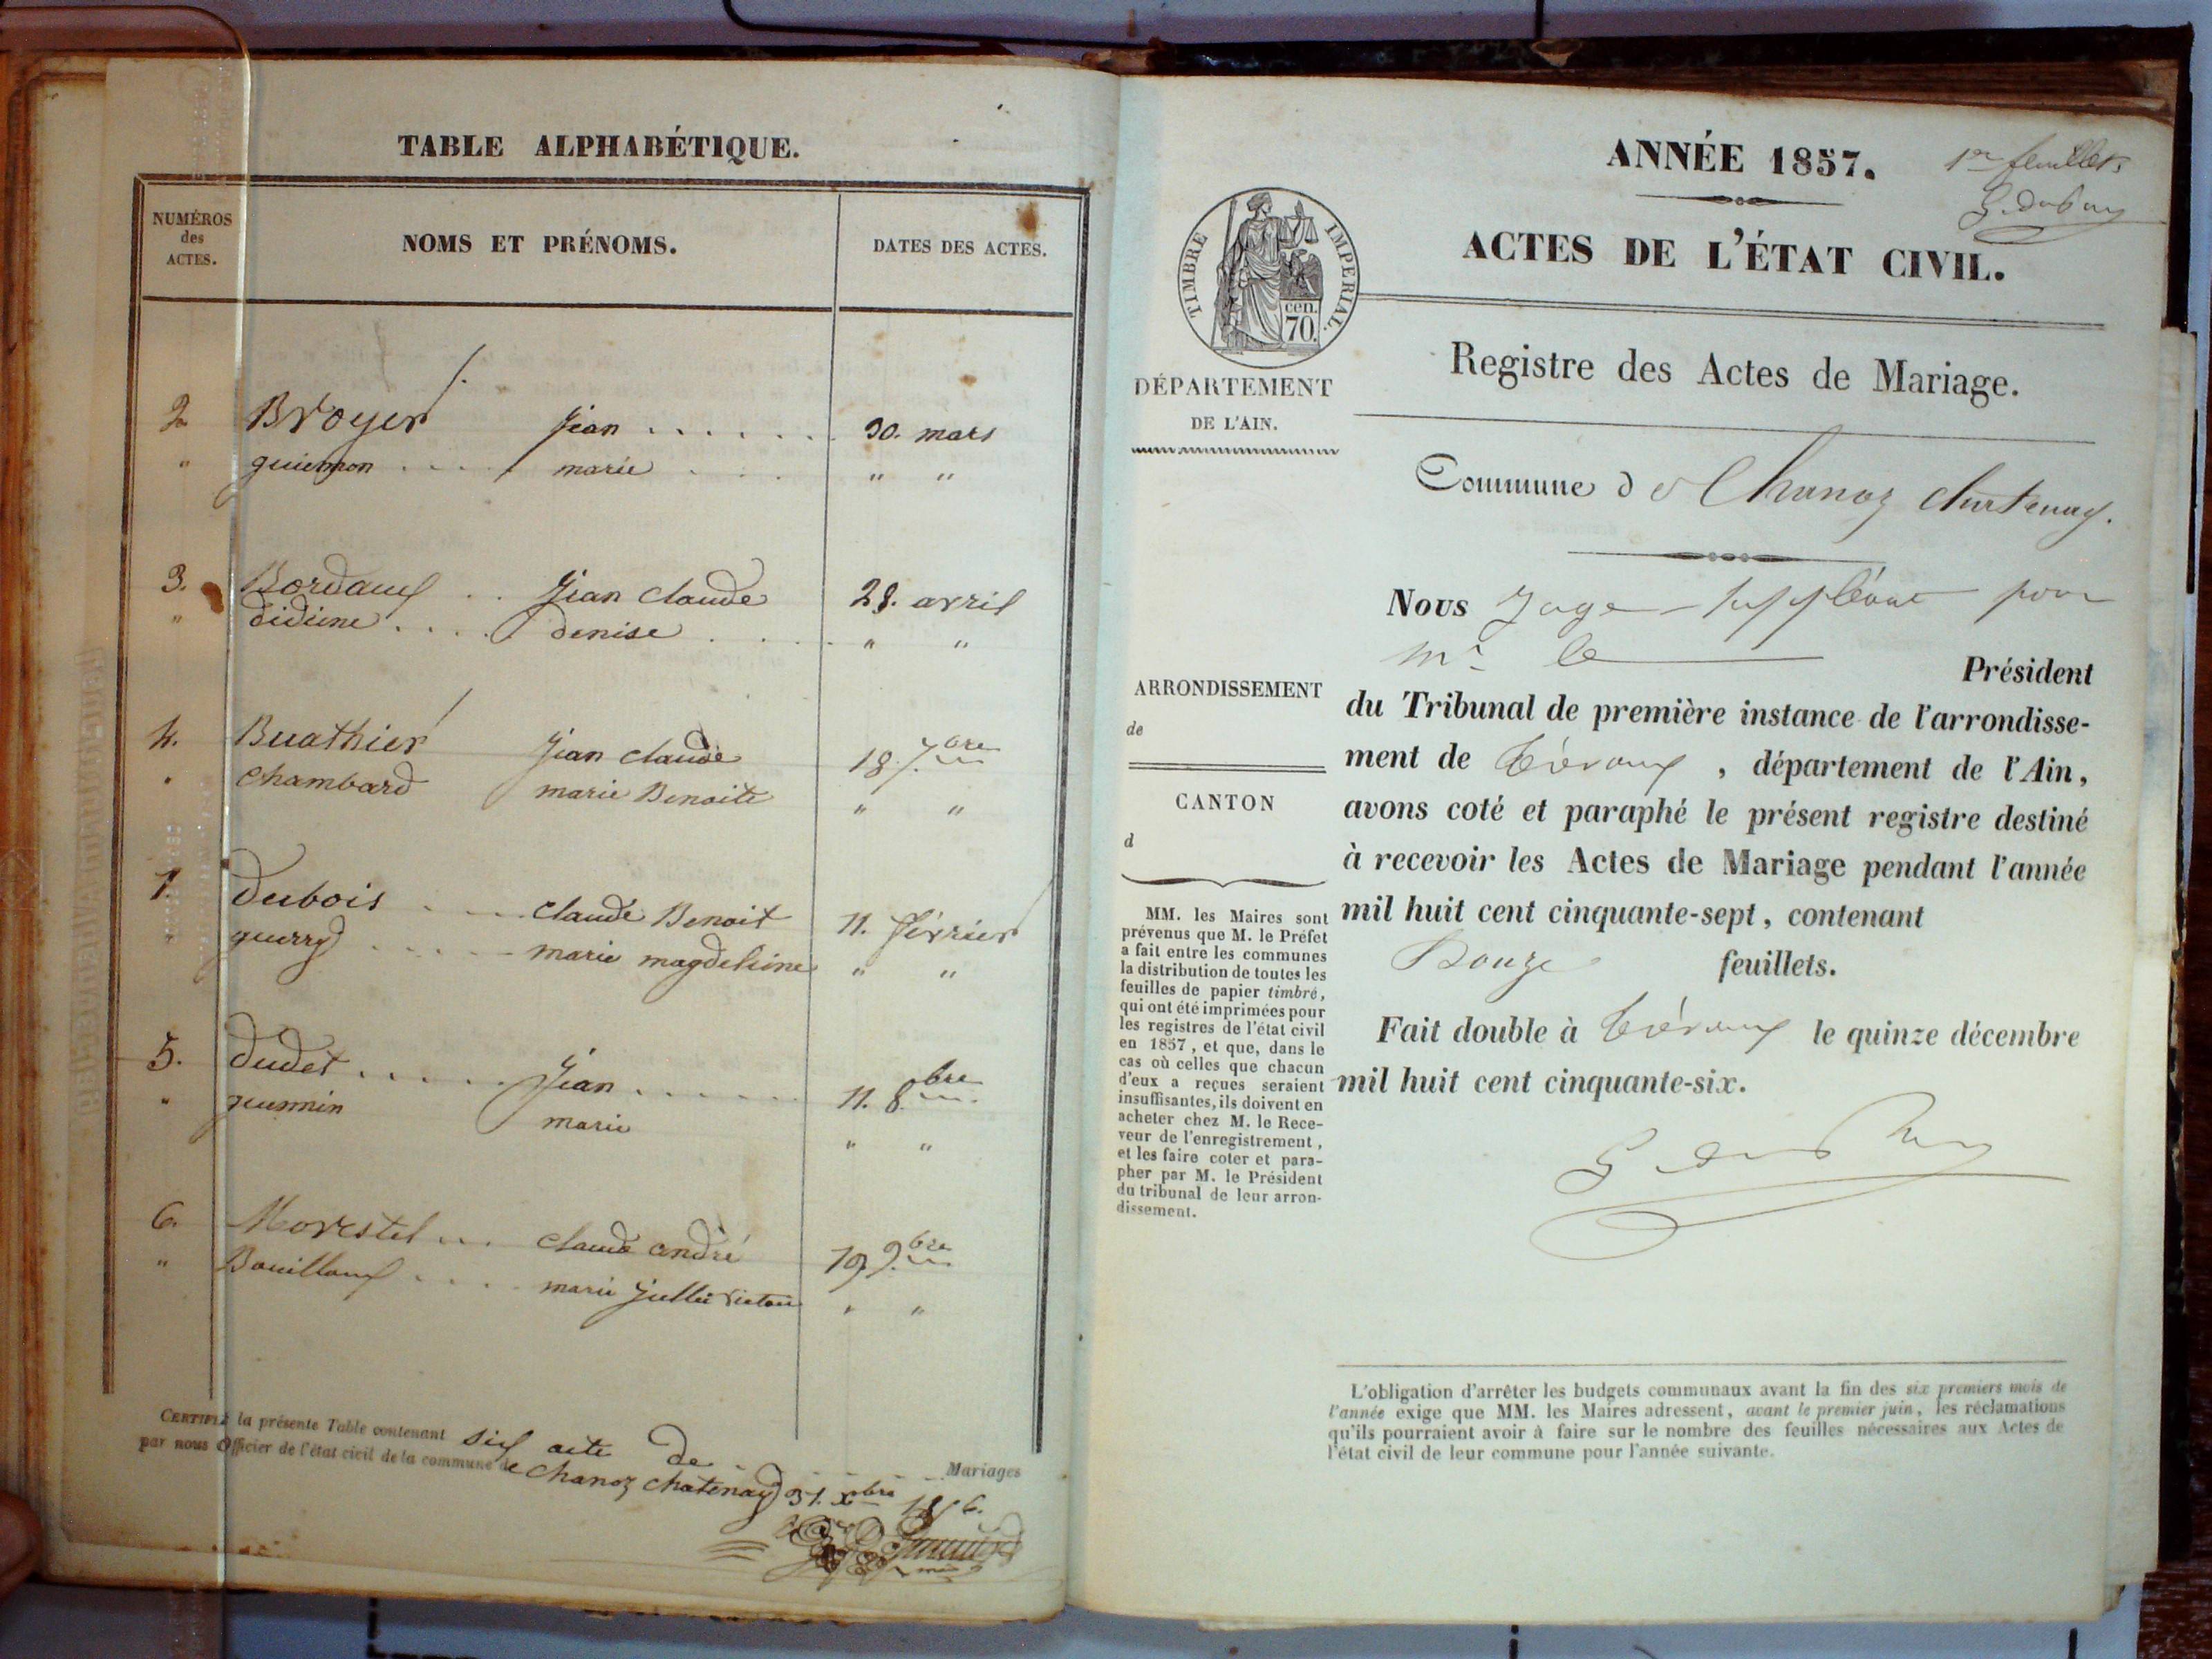 TABLE ALPHABÉTIQUE.
NUMÉROS
des
ACTES.
NOMS ET PRÉNOMS.
DATES DES ACTES.
2 Broyer jean . . . . . . . 30. mars
" marie . . . " "
3. Bordaux . . jean claude 28. avril
" didime . . . . denise . . . . " "
4. Buathier jean claude 18. 7.bre
" chambard marie Benoite " "
1. dubois . . . claude Benoit 11. février
" guerry . . . . . marie magdeleine " "
5. dudet . . . . . . jean . . . . . . . 11. 8.bre
" marie " "
6. Morestel . . . claude andré 19 9.bre
" Bouilloux . . . . marie " "
CERTIFIÉ la présente Table contenant six acte de . . . . Mariages
par nous Officier de l'état civil de la commune de Chanoz chatenay 31. xbre 1856.
ANNÉE 1857.
1er feuillet
ACTES DE L'ÉTAT CIVIL.
TIMBRE IMPERIAL.
cen.
70.
Registre des Actes de Mariage.
DÉPARTEMENT
DE L'AIN.
Commune de Chanoz Chatenay.
Nous Juge suppléant pour
Mr le Président
du Tribunal de première instance de l'arrondisse-
ment de Trévoux, département de l'Ain,
avons coté et paraphé le présent registre destiné
à recevoir les Actes de Mariage pendant l'année
mil huit cent cinquante-sept, contenant
Douze feuillets.
Fait double à Trévoux le quinze décembre
mil huit cent cinquante-six.
ARRONDISSEMENT
de
CANTON
d
MM. les Maires sont
prévenus que M. le Préfet
a fait entre les communes
la distribution de toutes les
feuilles de papier timbré,
qui ont été imprimées pour
les registres de l'état civil
en 1857, et que, dans le
cas où celles que chacun
d'eux a reçues seraient
insuffisantes, ils doivent en
acheter chez M. le Rece-
veur de l'enregistrement,
et les faire coter et para-
pher par M. le Président
du tribunal de leur arron-
dissement.
L'obligation d'arrêter les budgets communaux avant la fin des six premiers mois de
l'année exige que MM. les Maires adressent, avant le premier juin, les réclamations
qu'ils pourraient avoir à faire sur le nombre des feuilles nécessaires aux Actes de
l'état civil de leur commune pour l'année suivante.